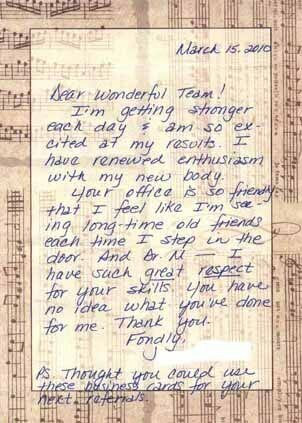 March 15, 2010
Dear Wonderful Team!
I'm getting stronger
each day & am so ex-
cited at my results. I
have renewed enthusiasm
with my new body.
Your office is so friendly
that I feel like I'm see-
ing long-time old friends
each time I step in the
door. And Dr. M — I
have such great respect
for your skills. You have
no idea what you've done
for me. Thank you.
Fondly,
Ps. Thought you could use
these business cards for your
next referrals.